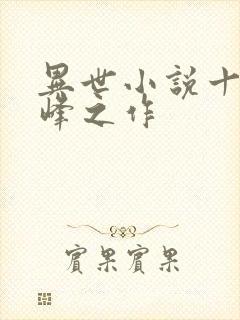 異世小説十
峰之作
賓果賓果